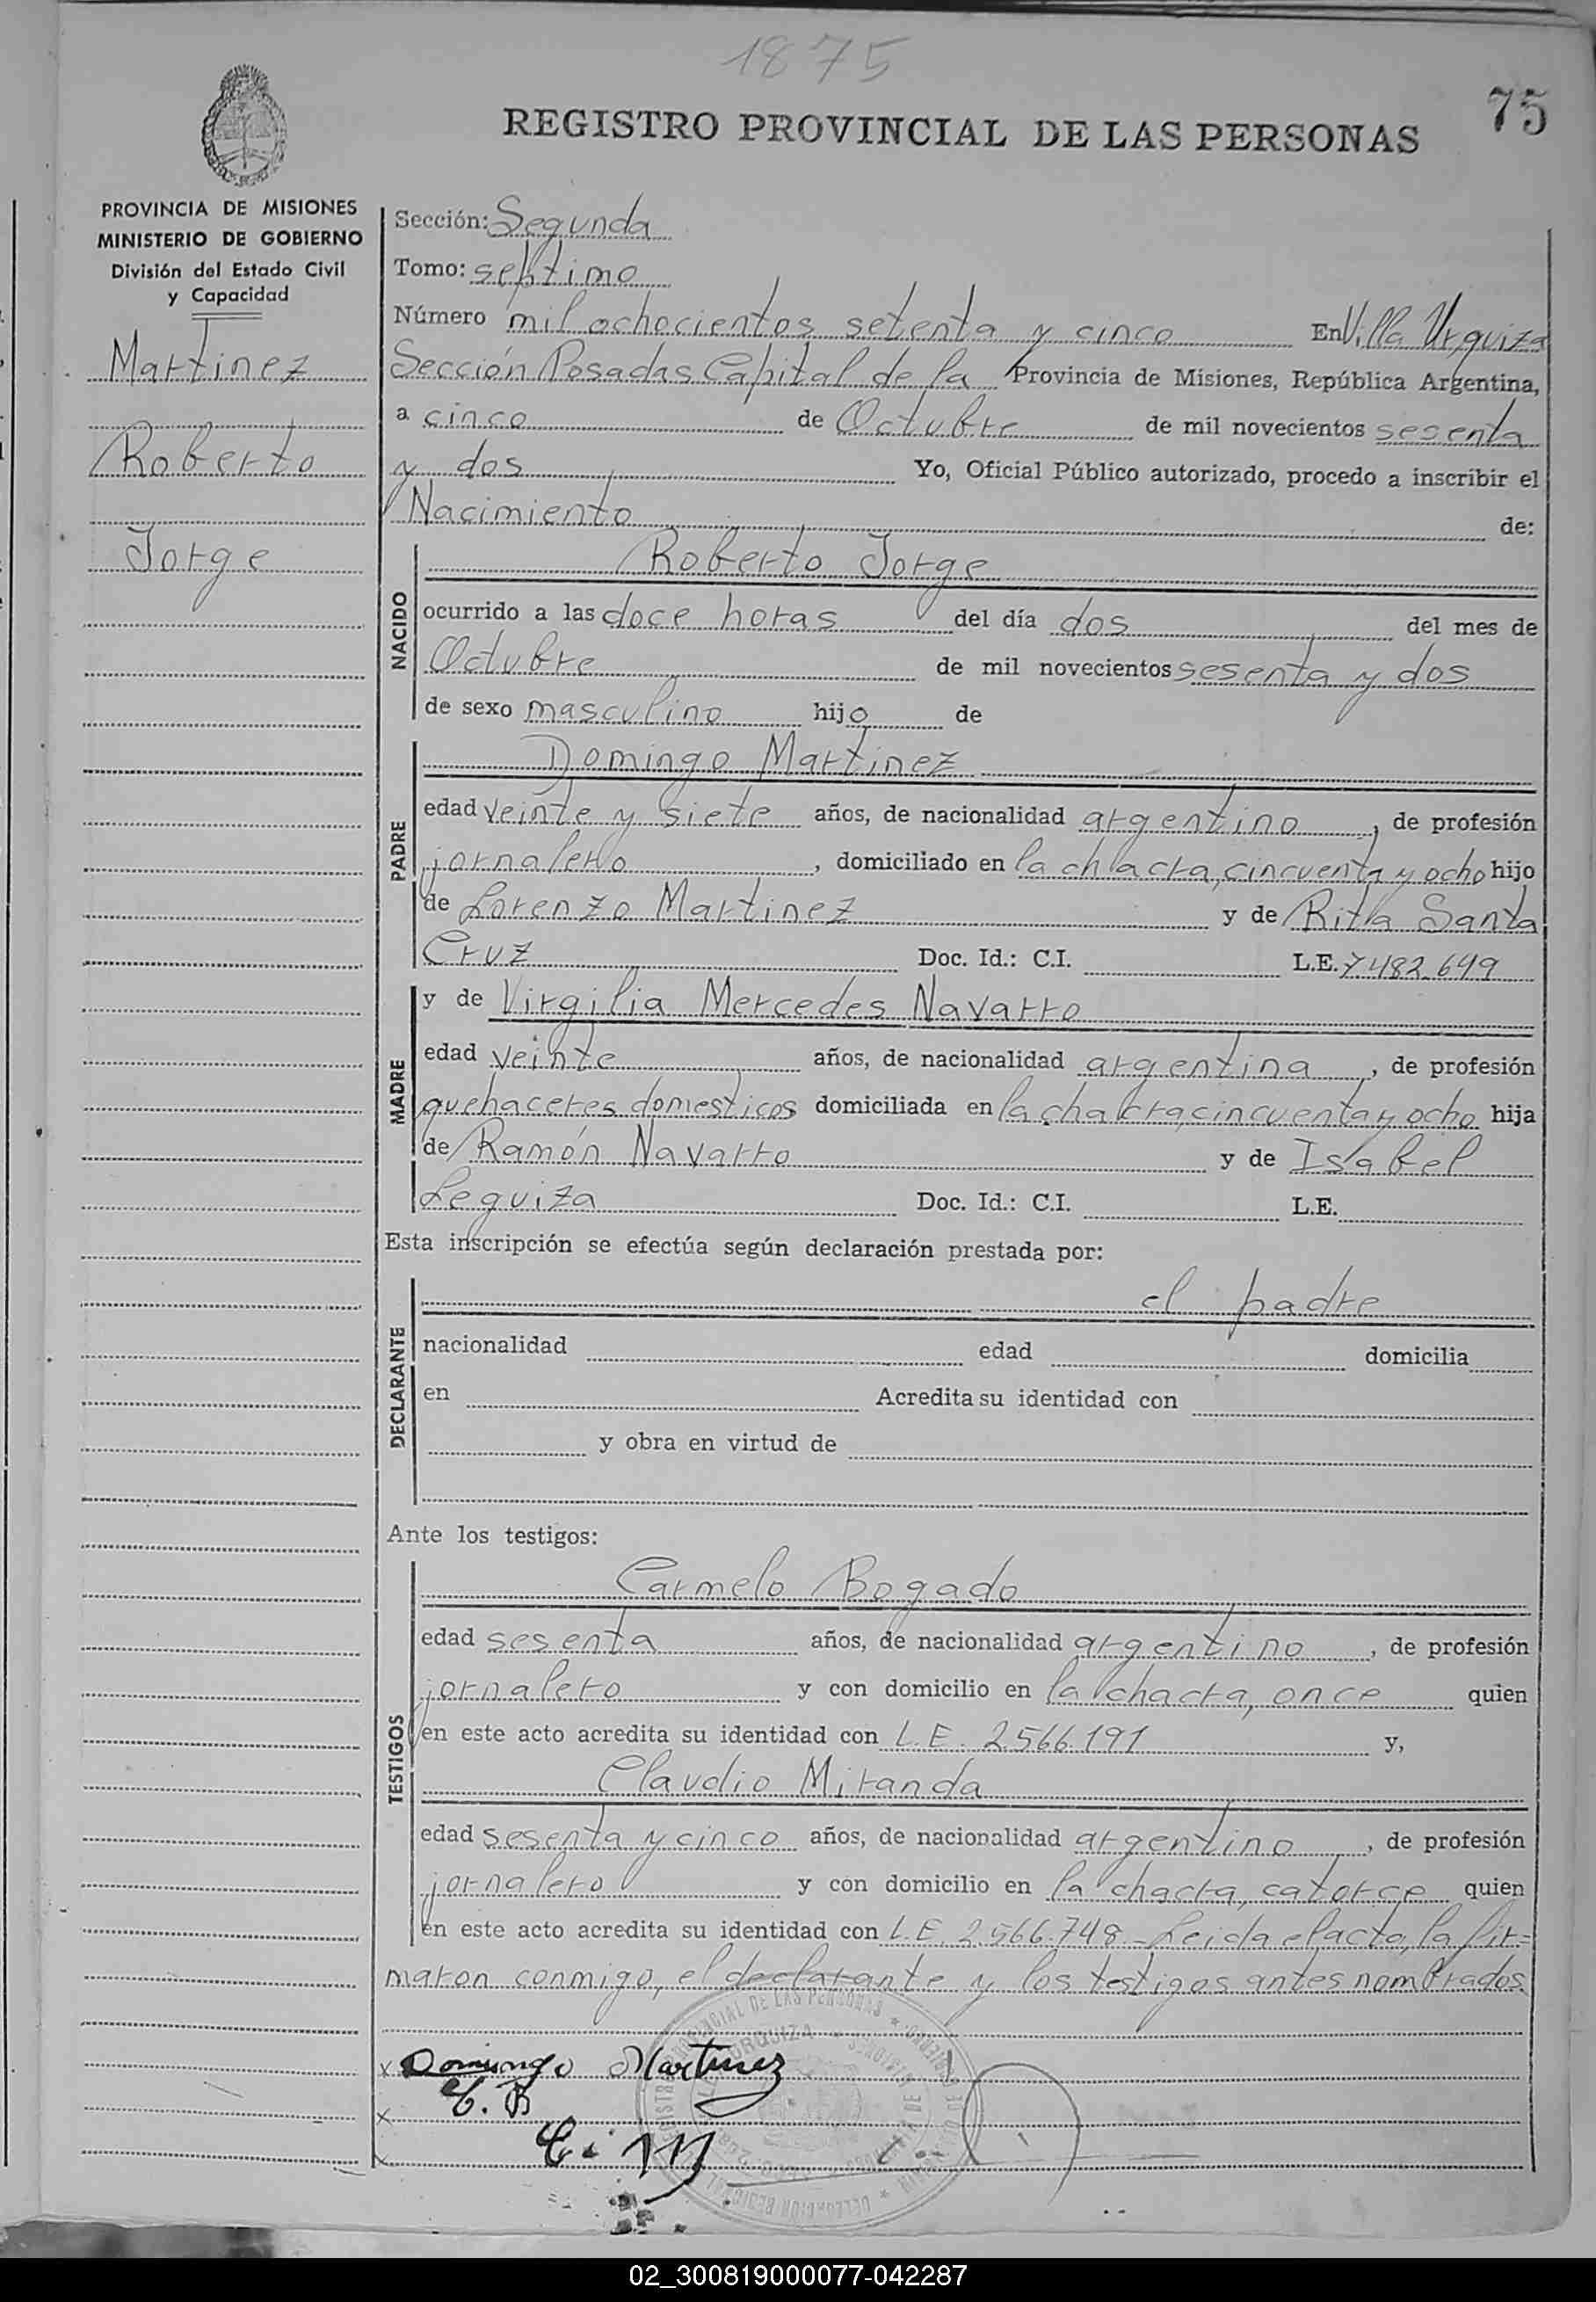 1875
75
REGISTRO PROVINCIAL DE LAS PERSONAS
PROVINCIA DE MISIONES
MINISTERIO DE GOBIERNO
División del Estado Civil
y Capacidad
Martinez
Roberto
Jorge
Sección: Segunda
Tomo: septimo
Número mil ochocientos setenta y cinco En Villa Urquiza
Sección Posadas Capital de la Provincia de Misiones, República Argentina,
a cinco de Octubre de mil novecientos sesenta
y dos Yo, Oficial Público autorizado, procedo a inscribir el
Nacimiento de:
NACIDO
Roberto Jorge
ocurrido a las doce horas del día dos del mes de
Octubre de mil novecientos sesenta y dos
de sexo masculino hijo de
PADRE
Domingo Martinez
edad veinte y siete años, de nacionalidad argentino, de profesión
jornalero, domiciliado en la chacra, cincuenta y ocho hijo
de Lorenzo Martinez y de Rita Santa
Cruz Doc. Id.: C.I. L.E. 7482.649
MADRE
y de Virgilia Mercedes Navarro
edad veinte años, de nacionalidad argentina, de profesión
quehaceres domesticos domiciliada en la chakra, cincuenta y ocho hija
de Ramón Navarro y de Isabel
Leguiza Doc. Id.: C.I. L.E.
Esta inscripción se efectúa según declaración prestada por:
DECLARANTE
el padre
nacionalidad edad domicilia
en Acredita su identidad con
y obra en virtud de
Ante los testigos:
TESTIGOS
Carmelo Bogado
edad sesenta años, de nacionalidad argentino, de profesión
jornalero y con domicilio en la chacra, once quien
en este acto acredita su identidad con L.E. 2.566.191 y,
Claudio Miranda
edad sesenta y cinco años, de nacionalidad argentino, de profesión
jornalero y con domicilio en la chacra, catorce quien
en este acto acredita su identidad con L.E. 2.566.748 - Leida el acta, la fir=
maron conmigo, el declarante y los testigos antes nombrados.
x Domingo Martinez
C. B
x
C. M
x
02_300819000077-042287